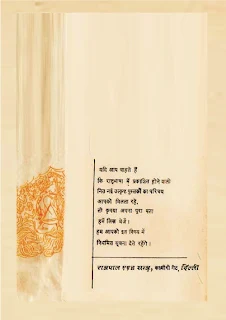 यदि आप चाहते हैं
कि राष्ट्रभाषा में प्रकाशित होने वाली
नित नई उत्कृष्ट पुस्तकों का परिचय
आपको मिलता रहे,
तो कृपया अपना पूरा पता
हमें लिख भेजें।
हम आपको इस विषय में
नियमित सूचना देते रहेंगे।
राजपाल एण्ड सन्ज़, कश्मीरी गेट, दिल्ली